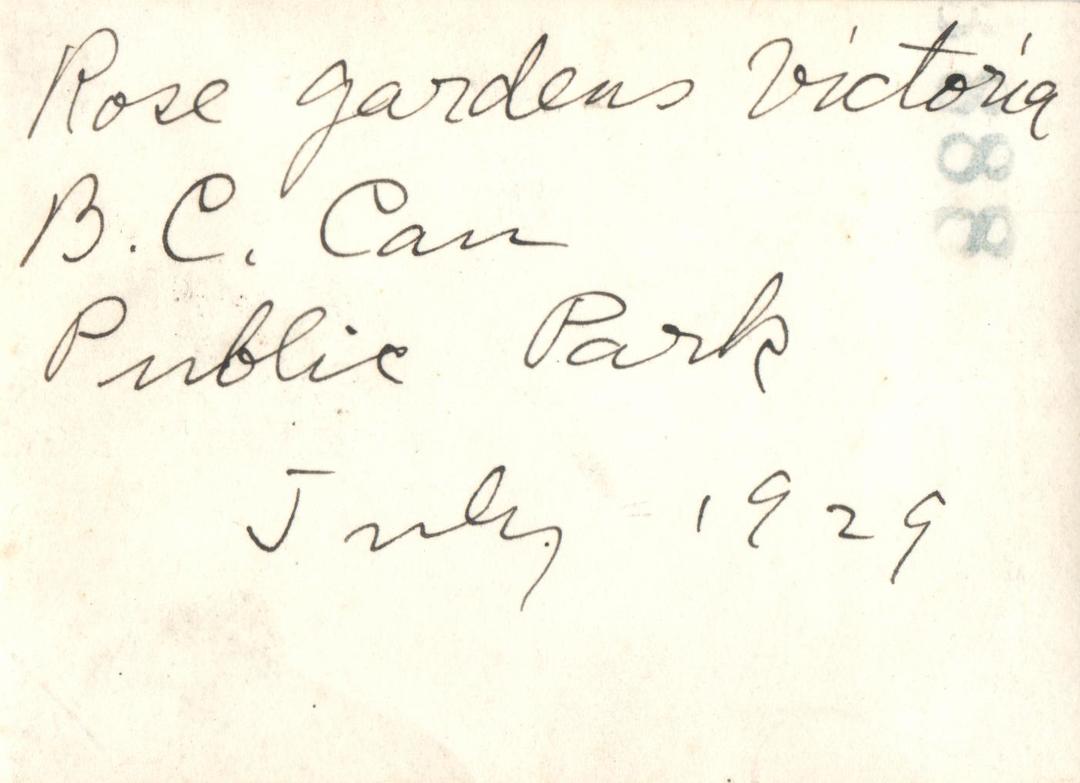 Rose gardens Victoria
B.C. Can
Public Park
July 1929